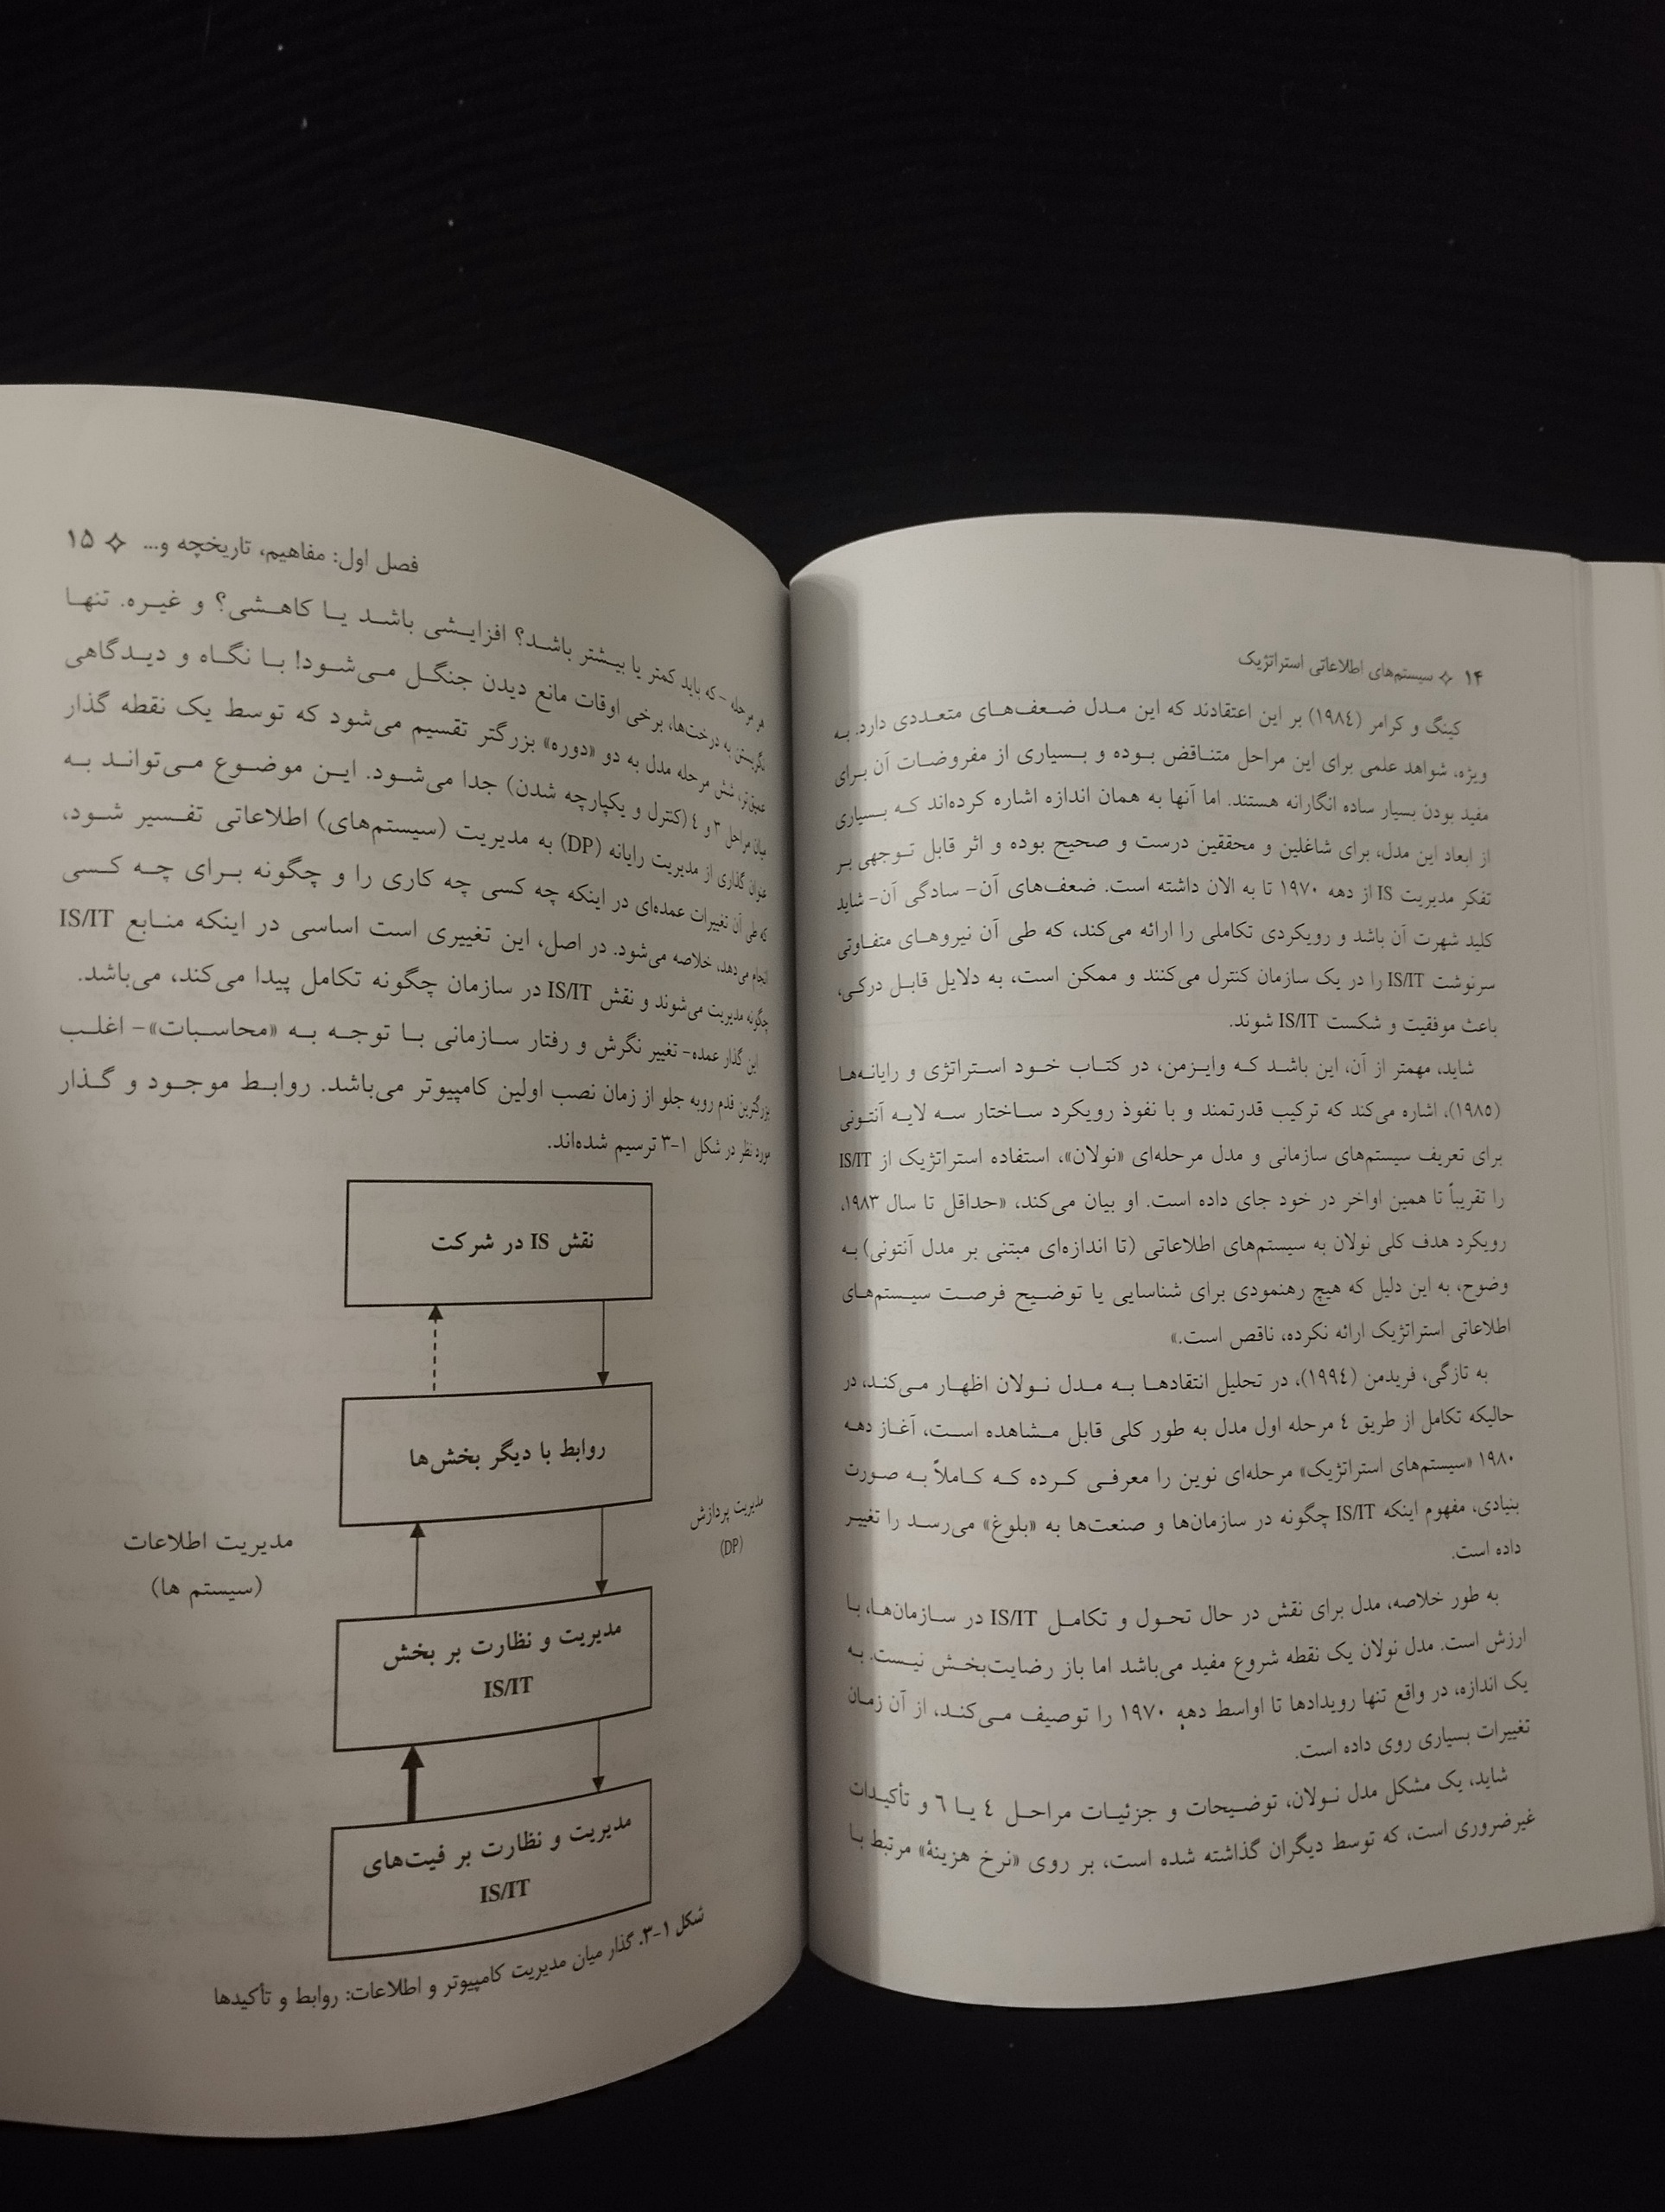 ۱۴ ✧ سیستم‌های اطلاعاتی استراتژیک
کینگ و کرامر (۱۹۸٤) بر این اعتقادند که این مـدل ضـعف‌هـای متعـددی دارد. بـه
ویژه، شواهد علمی برای این مراحل متنـاقض بـوده و بـسیاری از مفروضـات آن بـرای
مفید بودن بسیار ساده انگارانه هستند. اما آنها به همان اندازه اشاره کرده‌اند کـه بـسیاری
از ابعاد این مدل، برای شاغلین و محققین درست و صحیح بوده و اثر قابل تـوجهی بـر
تفکر مدیریت IS از دهه ۱۹۷۰ تا به الان داشته است. ضعف‌های آن- سادگی آن- شاید
کلید شهرت آن باشد و رویکردی تکاملی را ارائه می‌کند، که طی آن نیروهـای متفـاوتی
سرنوشت IS/IT را در یک سازمان کنترل می‌کنند و ممکن است، به دلایل قابـل درکـی،
باعث موفقیت و شکست IS/IT شوند.
شاید، مهمتر از آن، این باشـد کـه وایـزمن، در کتـاب خـود اسـتراتژی و رایانـه‌هـا
(۱۹۸٥)، اشاره می‌کند که ترکیب قدرتمند و با نفوذ رویکرد سـاختار سـه لایـه آنتـونی
برای تعریف سیستم‌های سازمانی و مدل مرحله‌ای «نولان»، استفاده استراتژیک از IS/IT
را تقریباً تا همین اواخر در خود جای داده است. او بیان می‌کند، «حداقل تا سال ۱۹۸۳،
رویکرد هدف کلی نولان به سیستم‌های اطلاعاتی (تا اندازه‌ای مبتنی بر مدل آنتونی) بـه
وضوح، به این دلیل که هیچ رهنمودی برای شناسایی یا توضـیح فرصـت سیـستم‌هـای
اطلاعاتی استراتژیک ارائه نکرده، ناقص است.»
به تازگی، فریدمن (۱۹۹٤)، در تحلیل انتقادهـا بـه مـدل نـولان اظهـار مـی‌کنـد، در
حالیکه تکامل از طریق ٤ مرحله اول مدل به طور کلی قابل مـشاهده اسـت، آغـاز دهـه
۱۹۸۰ «سیستم‌های استراتژیک» مرحله‌ای نوین را معرفـی کـرده کـه کـاملاً بـه صـورت
بنیادی، مفهوم اینکه IS/IT چگونه در سازمان‌ها و صنعت‌ها به «بلوغ» می‌رسـد را تغییـر
داده است.
به طور خلاصه، مدل برای نقش در حال تحـول و تکامـل IS/IT در سـازمان‌هـا، بـا
ارزش است. مدل نولان یک نقطه شروع مفید می‌باشد اما باز رضایت‌بخـش نیـست. بـه
یک اندازه، در واقع تنها رویدادها تا اواسط دهه ۱۹۷۰ را توصیف مـی‌کنـد، از آن زمـان
تغییرات بسیاری روی داده است.
شاید، یک مشکل مدل نـولان، توضـیحات و جزئیـات مراحـل ٤ یـا ٦ و تأکیـدات
غیرضروری است، که توسط دیگران گذاشته شده است، بر روی «نرخ هزینهٔ» مرتبط بـا
فصل اول: مفاهیم، تاریخچه و... ✧ ۱۵
هر مرحله – که باید کمتر یا بیـشتر باشـد؟ افزایـشی باشـد یـا کاهـشی؟ و غیـره. تنهـا
نگریستن به درخت‌ها، برخی اوقات مانع دیدن جنگـل مـی‌شـود! بـا نگـاه و دیـدگاهی
عمیق‌تر، شش مرحله مدل به دو «دوره» بزرگتر تقسیم می‌شود که توسط یک نقطه گذار
میان مراحل ۳ و ٤ (کنترل و یکپارچه شدن) جدا می‌شـود. ایـن موضـوع مـی‌توانـد بـه
عنوان گذاری از مدیریت رایانه (DP) به مدیریت (سیستم‌های) اطلاعاتی تفـسیر شـود،
که طی آن تغییرات عمده‌ای در اینکه چه کسی چه کاری را و چگونه بـرای چـه کـسی
انجام می‌دهد، خلاصه می‌شود. در اصل، این تغییری است اساسی در اینکه منـابع IS/IT
چگونه مدیریت می‌شوند و نقش IS/IT در سازمان چگونه تکامل پیدا می‌کند، می‌باشد.
این گذار عمده- تغییر نگرش و رفتار سـازمانی بـا توجـه بـه «محاسـبات»- اغلـب
بزرگترین قدم روبه جلو از زمان نصب اولین کامپیوتر می‌باشد. روابـط موجـود و گـذار
مورد نظر در شکل ۱-۳ ترسیم شده‌اند.
نقش IS در شرکت
روابط با دیگر بخش‌ها
مدیریت پردازش
(DP)
مدیریت اطلاعات
(سیستم ها)
مدیریت و نظارت بر بخش
IS/IT
مدیریت و نظارت بر فیت‌های
IS/IT
شکل ۱-۳. گذار میان مدیریت کامپیوتر و اطلاعات: روابط و تأکیدها